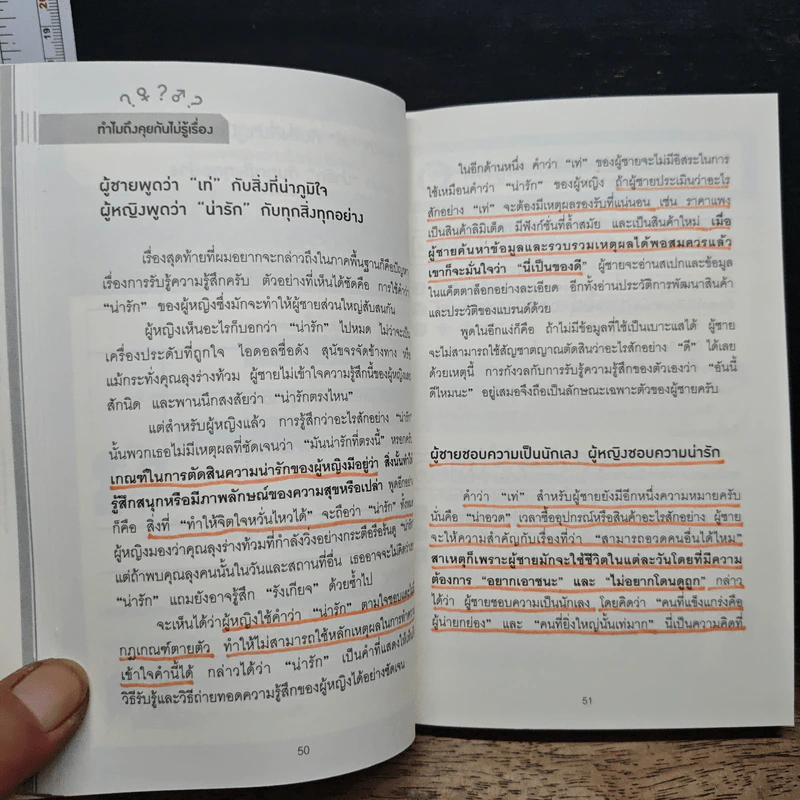 19
20
ทำไมถึงคุยกันไม่รู้เรื่อง
ผู้ชายพูดว่า “เท่” กับสิ่งที่น่าภูมิใจ
ผู้หญิงพูดว่า “น่ารัก” กับทุกสิ่งทุกอย่าง
เรื่องสุดท้ายที่ผมอยากจะกล่าวถึงในภาคพื้นฐานก็คือปัญหา
เรื่องการรับรู้ความรู้สึกครับ ตัวอย่างที่เห็นได้ชัดคือ การใช้คำว่า
“น่ารัก” ของผู้หญิงซึ่งมักจะทำให้ผู้ชายส่วนใหญ่สับสนกัน
ผู้หญิงเห็นอะไรก็บอกว่า “น่ารัก” ไปหมด ไม่ว่าจะเป็น
เครื่องประดับที่ถูกใจ ไอดอลชื่อดัง สุนัขจรจัดข้างทาง หรือ
แม้กระทั่งคุณลุงร่างท้วม ผู้ชายไม่เข้าใจความรู้สึกนี้ของผู้หญิงเลย
สักนิด และพานนึกสงสัยว่า “น่ารักตรงไหน”
แต่สำหรับผู้หญิงแล้ว การรู้สึกว่าอะไรสักอย่าง “น่ารัก”
นั้นพวกเธอไม่มีเหตุผลที่ชัดเจนว่า “มันน่ารักที่ตรงนี้” หรอกครับ
เกณฑ์ในการตัดสินความน่ารักของผู้หญิงมีอยู่ว่า สิ่งนั้นทำให้
รู้สึกสนุกหรือมีภาพลักษณ์ของความสุขหรือเปล่า พูดอีกอย่าง
ก็คือ สิ่งที่ “ทำให้จิตใจหวั่นไหวได้” จะถือว่า “น่ารัก” ทั้งหมด
ผู้หญิงมองว่าคุณลุงร่างท้วมที่กำลังวิ่งอย่างกระตือรือร้นดู “น่ารัก”
แต่ถ้าพบคุณลุงคนนั้นในวันและสถานที่อื่น เธออาจจะไม่คิดว่า
“น่ารัก” แถมยังอาจรู้สึก “รังเกียจ” ด้วยซ้ำไป
จะเห็นได้ว่าผู้หญิงใช้คำว่า “น่ารัก” ตามใจชอบและไม่มี
กฎเกณฑ์ตายตัว ทำให้ไม่สามารถใช้หลักเหตุผลในการทำความ
เข้าใจคำนี้ได้ กล่าวได้ว่า “น่ารัก” เป็นคำที่แสดงให้เห็นถึง
วิธีรับรู้และวิธีถ่ายทอดความรู้สึกของผู้หญิงได้อย่างชัดเจน
50
ในอีกด้านหนึ่ง คำว่า “เท่” ของผู้ชายจะไม่มีอิสระในการ
ใช้เหมือนคำว่า “น่ารัก” ของผู้หญิง ถ้าผู้ชายประเมินว่าอะไร
สักอย่าง “เท่” จะต้องมีเหตุผลรองรับที่แน่นอน เช่น ราคาแพง
เป็นสินค้าลิมิเต็ด มีฟังก์ชั่นที่ล้ำสมัย และเป็นสินค้าใหม่ เมื่อ
ผู้ชายค้นหาข้อมูลและรวบรวมเหตุผลได้พอสมควรแล้ว
เขาก็จะมั่นใจว่า “นี่เป็นของดี” ผู้ชายจะอ่านสเปกและข้อมูล
ในแค็ตตาล็อกอย่างละเอียด อีกทั้งอ่านประวัติการพัฒนาสินค้า
และประวัติของแบรนด์ด้วย
พูดในอีกแง่ก็คือ ถ้าไม่มีข้อมูลที่ใช้เป็นเบาะแสได้ ผู้ชาย
จะไม่สามารถใช้สัญชาตญาณตัดสินว่าอะไรสักอย่าง “ดี” ได้เลย
ด้วยเหตุนี้ การกังวลกับการรับรู้ความรู้สึกของตัวเองว่า “อันนี้
ดีไหมนะ” อยู่เสมอจึงถือเป็นลักษณะเฉพาะตัวของผู้ชายครับ
ผู้ชายชอบความเป็นนักเลง ผู้หญิงชอบความน่ารัก
คำว่า “เท่” สำหรับผู้ชายยังมีอีกหนึ่งความหมายครับ
นั่นคือ “น่าอวด” เวลาซื้ออุปกรณ์หรือสินค้าอะไรสักอย่าง ผู้ชาย
จะให้ความสำคัญกับเรื่องที่ว่า “สามารถอวดคนอื่นได้ไหม”
สาเหตุก็เพราะผู้ชายมักจะใช้ชีวิตในแต่ละวันโดยที่มีความ
ต้องการ “อยากเอาชนะ” และ “ไม่อยากโดนดูถูก” กล่าว
ได้ว่า ผู้ชายชอบความเป็นนักเลง โดยคิดว่า “คนที่แข็งแกร่งคือ
ผู้น่ายกย่อง” และ “คนที่ยิ่งใหญ่นั้นเท่มาก” นี่เป็นความคิดที่
51